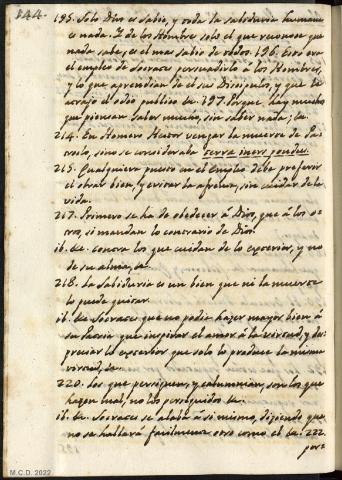 144.
195. Solo Dios es sabio, y toda la sabiduria humana
es nada. I de los Hombres solo el que reconose que
nada sabe, es el mas sabio de todos. 196. Esto era
el empleo de Socrates persuadirlo à los Hombres,
y lo que aprendian de el sus Discipulos, y que le
atrajo el odio publico &c. 197. Porque hay muchos
que piensan saber mucho, sin saber nada; &c.
214. En Homero Hector vengar la muerte de Pa-
troclo, sino se consideraba terra iners pondus.
215. Cualquiera puesto en el empleo debe preferir
el obrar bien, y evitar la afrenta, sin cuidar de la
vida.
217. Primero se ha de obedecer à Dios, que à los o-
tros, si mandan lo contrario de Dios.
ib. &c. contra los que cuidan de lo exterior, y no
de su alma, &c.
218. La Sabiduria es un bien que ni la muerte
lo puede quitar.
ib. &c. Socrates que no podia hazer mayor bien à
su Patria que inspirar el amor à la virtud, y des-
preciar lo exterior que solo lo produce la misma
virtud, &c.
220. Los que persiguen, y calumnian, son los que
hazen mal, no los perseguidos &c.
ib. &c. Socrates se alaba à si mismo, diziendo que
no se hallarà facilmente otro como el &c. 222.
por-
M.C.D. 2022